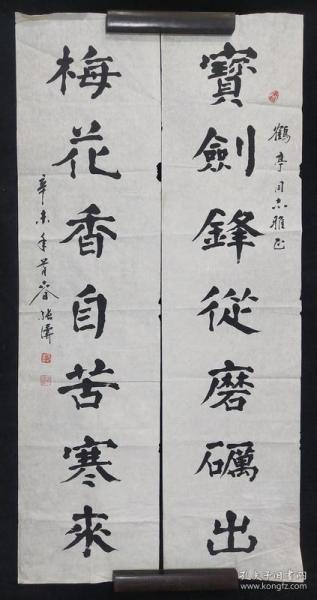 寶劍鋒從磨礪出
鶴亭同志雅正
梅花香自苦寒來
辛未年首春
孔夫子旧书网
www.kongfz.com